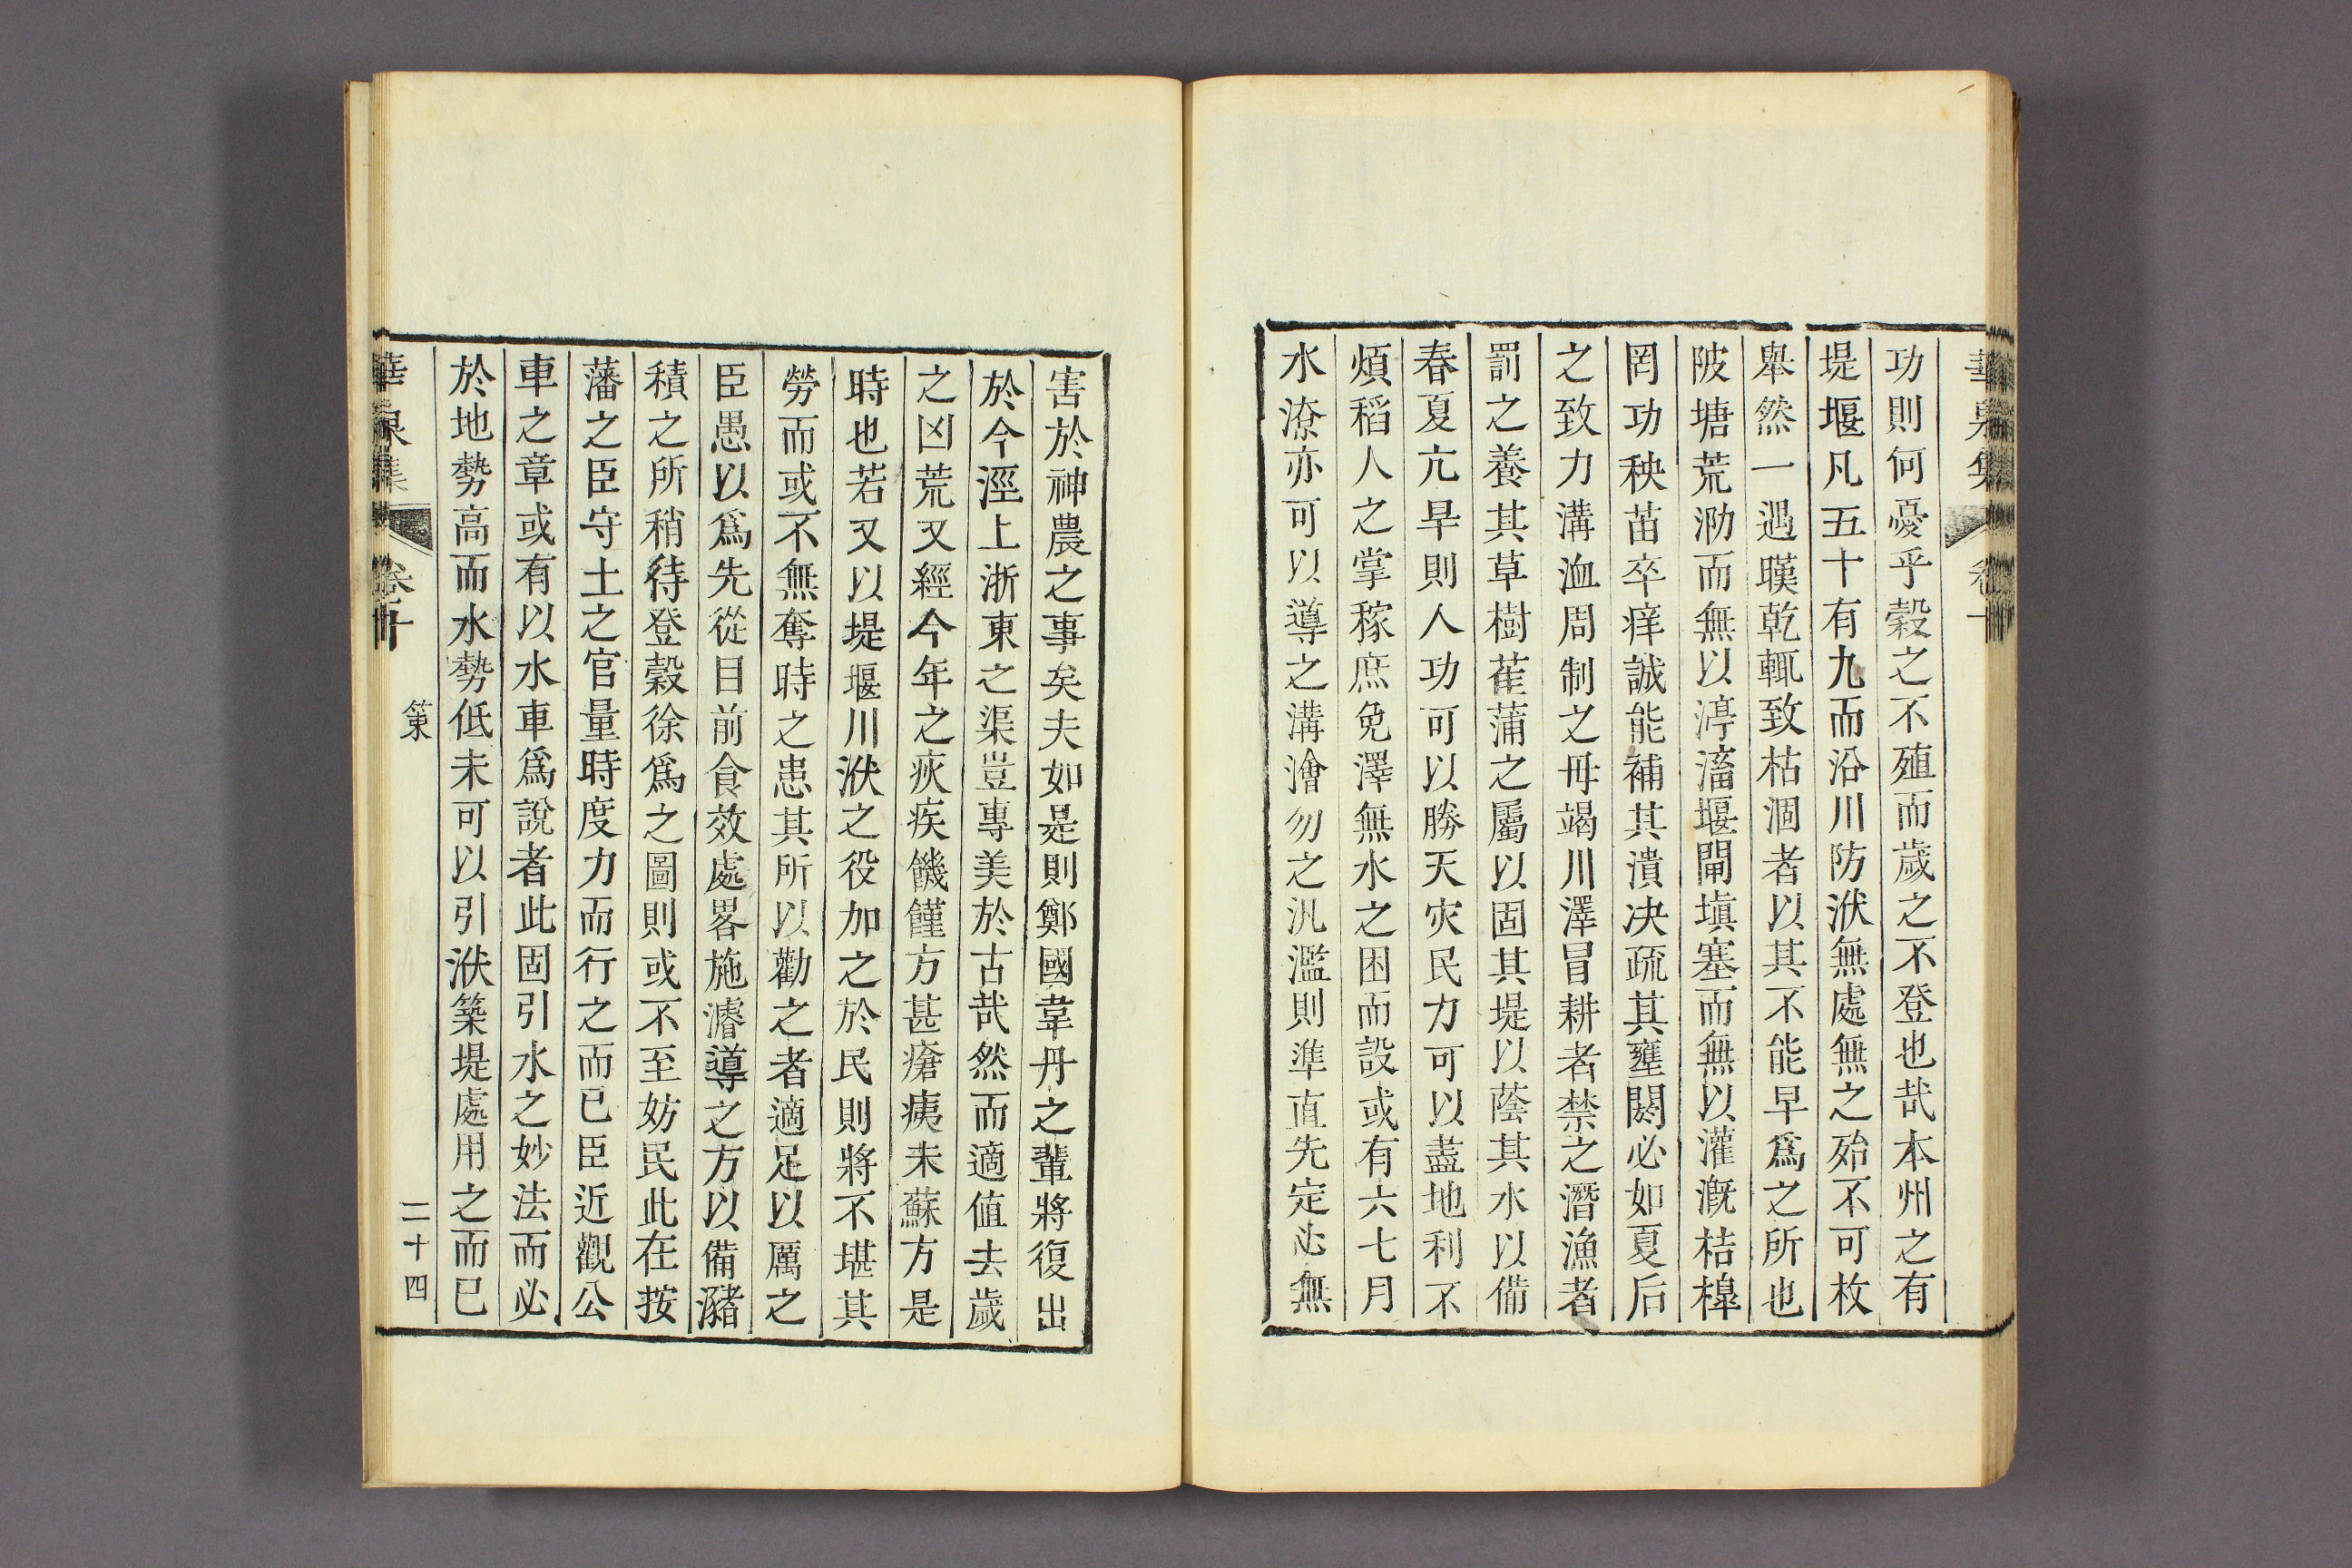 功則何憂乎穀之不殖而歲之不登也哉本州之有
堤堰凡五十有九而沿川防洑無處無之殆不可枚
舉然一遇暵乾輒致枯涸者以其不能早爲之所也
陂塘荒泐而無以渟滀堰閘塡塞而無以灌漑桔槹
罔功秧苗卒痒誠能補其潰决疏其壅閼必如夏后
之致力溝洫周制之毋竭川澤冒耕者禁之潛漁者
罰之養其草樹萑蒲之屬以固其堤以蔭其水以備
春夏亢旱則人功可以勝天灾民力可以盡地利不
煩稻人之掌稼庶免澤無水之困而設或有六七月
水潦亦可以導之溝澮勿之汎濫則準直先定必無
害於神農之事矣夫如是則鄭國韋丹之輩將復出
於今涇上浙東之渠豈專美於古哉然而適值去歲
之凶荒又經今年之疢疾饑饉方甚瘡痍未蘇方是
時也若又以堤堰川洑之役加之於民則將不堪其
勞而或不無奪時之患其所以勸之者適足以厲之
臣愚以爲先從目前食效處畧施濬導之方以備豬
積之所稍待登穀徐爲之圖則或不至妨民此在按
藩之臣守土之官量時度力而行之而已臣近觀公
車之章或有以水車爲說者此固引水之妙法而必
於地勢高而水勢低未可以引洑築堤處用之而已
華泉集 卷十 策 二十四